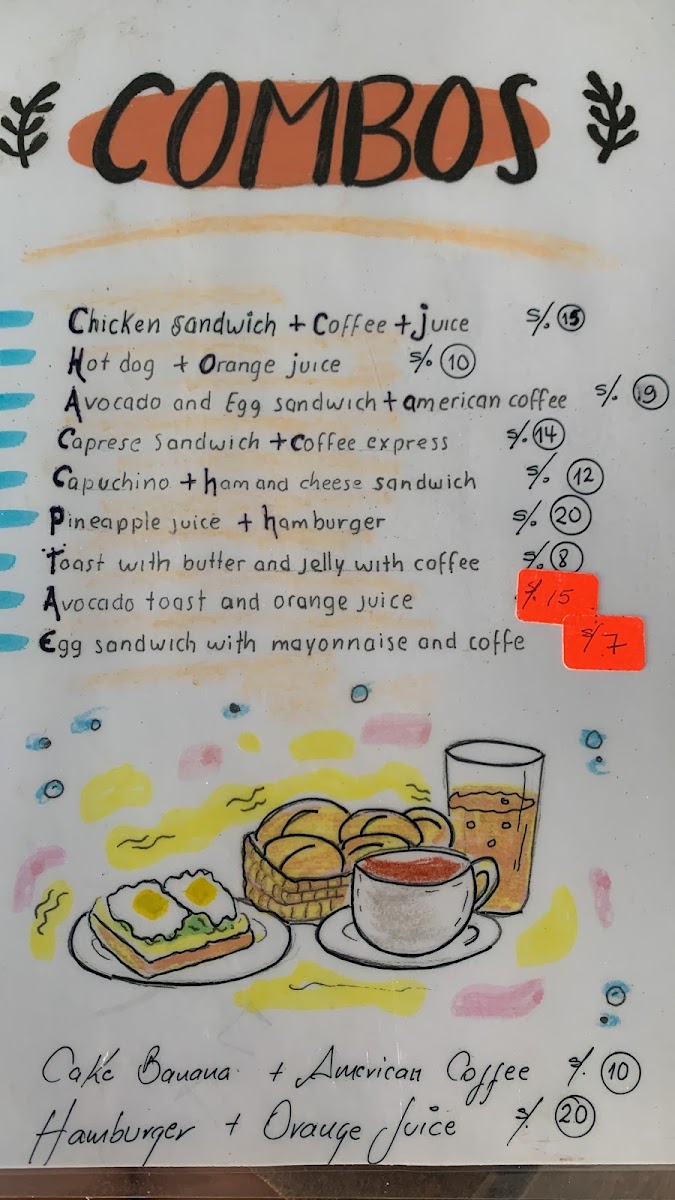 COMBOS
Chicken sandwich + Coffee + juice S/. 15
Hot dog + Orange juice S/. 10
Avocado and Egg sandwich + american coffee S/. 9
Caprese Sandwich + Coffee express S/. 14
Capuchino + ham and cheese sandwich S/. 12
Pineapple juice + hamburger S/. 20
Toast with butter and jelly with coffee S/. 8
Avocado toast and orange juice S/. 15
Egg sandwich with mayonnaise and coffe S/ 7
Cake Banana + American Coffee S/. 10
Hamburger + Orange Juice S/ 20